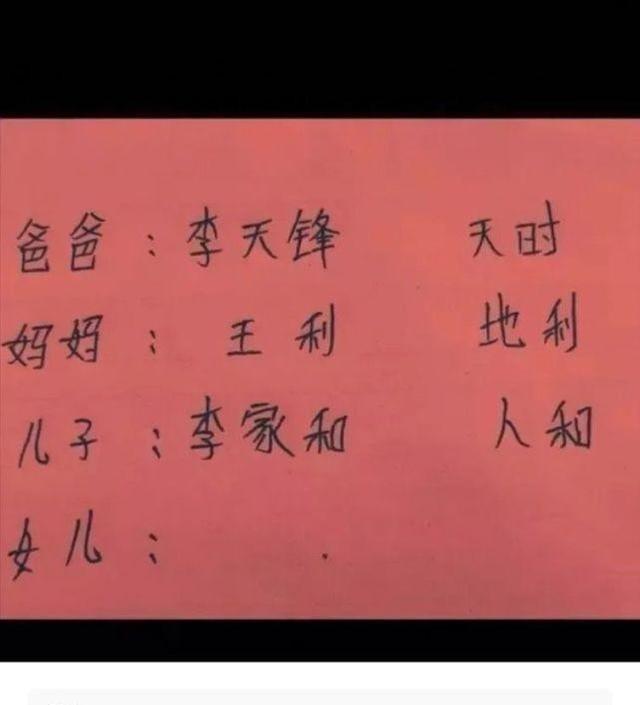 爸爸：李天锋 天时
妈妈：王利 地利
儿子：李家和 人和
女儿：